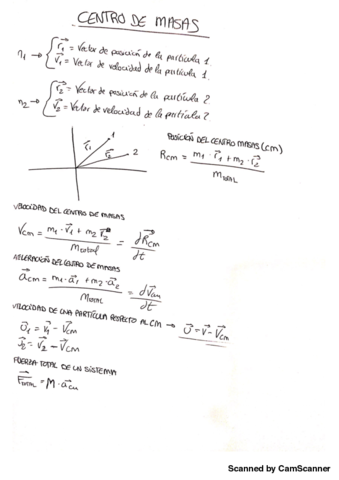 CENTRO DE MASAS
n₁ → { r⃗₁ = Vector de posición de la partícula 1.
v⃗₁ = Vector de velocidad de la partícula 1.
n₂ → { r⃗₂ = Vector de posición de la partícula 2.
v⃗₂ = Vector de velocidad de la partícula 2
r⃗₁ 1
r⃗₂ 2
POSICIÓN DEL CENTRO MASAS (CM)
R_CM = (m₁ · r⃗₁ + m₂ · r⃗₂) / M_TOTAL
VELOCIDAD DEL CENTRO DE MASAS
V_CM = (m₁ · v⃗₁ + m₂ r⃗₂) / M_total = dR⃗_CM / dt
ACELERACIÓN DEL CENTRO DE MASAS
a⃗_CM = (m₁ · a⃗₁ + m₂ · a⃗₂) / M_TOTAL = dv⃗_CM / dt
VELOCIDAD DE UNA PARTÍCULA RESPECTO AL CM → U⃗ = v⃗ - V⃗_CM
U⃗₁ = v⃗₁ - V⃗_CM
U⃗₂ = v⃗₂ - V⃗_CM
FUERZA TOTAL DE UN SISTEMA
F⃗_TOTAL = M · a⃗_CM
Scanned by CamScanner